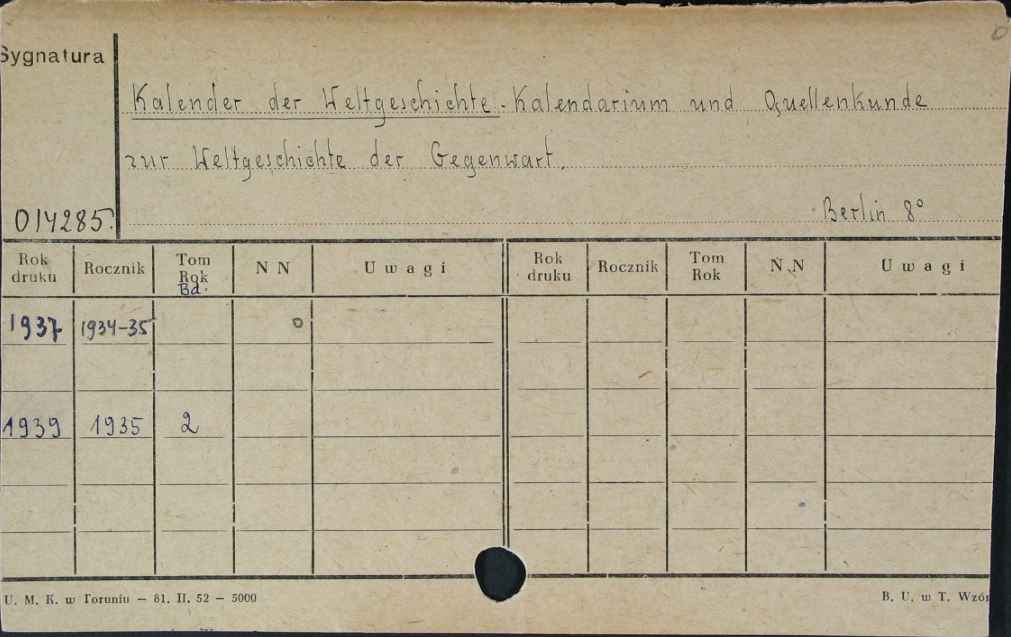 Sygnatura
Kalender der Weltgeschichte. Kalendarium und Quellenkunde
zur Weltgeschichte der Gegenwart.
014285.
Berlin 8°
Rok druku Rocznik Tom Rok Bd. N N Uwagi Rok druku Rocznik Tom Rok N.N Uwagi
1937 1934-35
1939 1935 2
U. M. K. w Toruniu — 81. II. 52 — 5000
B. U. w T. Wzór